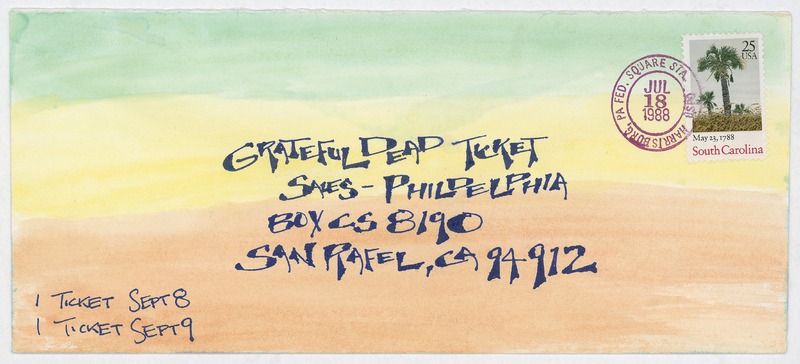 GRATEFUL DEAD TICKET
SALES - PHILDELPHIA
BOX CS 8190
SAN RAFEL, CA 94912
1 TICKET SEPT 8
1 TICKET SEPT 9
HARRISBURG, PA FED. SQUARE STA. USPO
JUL
18
1988
25
USA
May 23, 1788
South Carolina